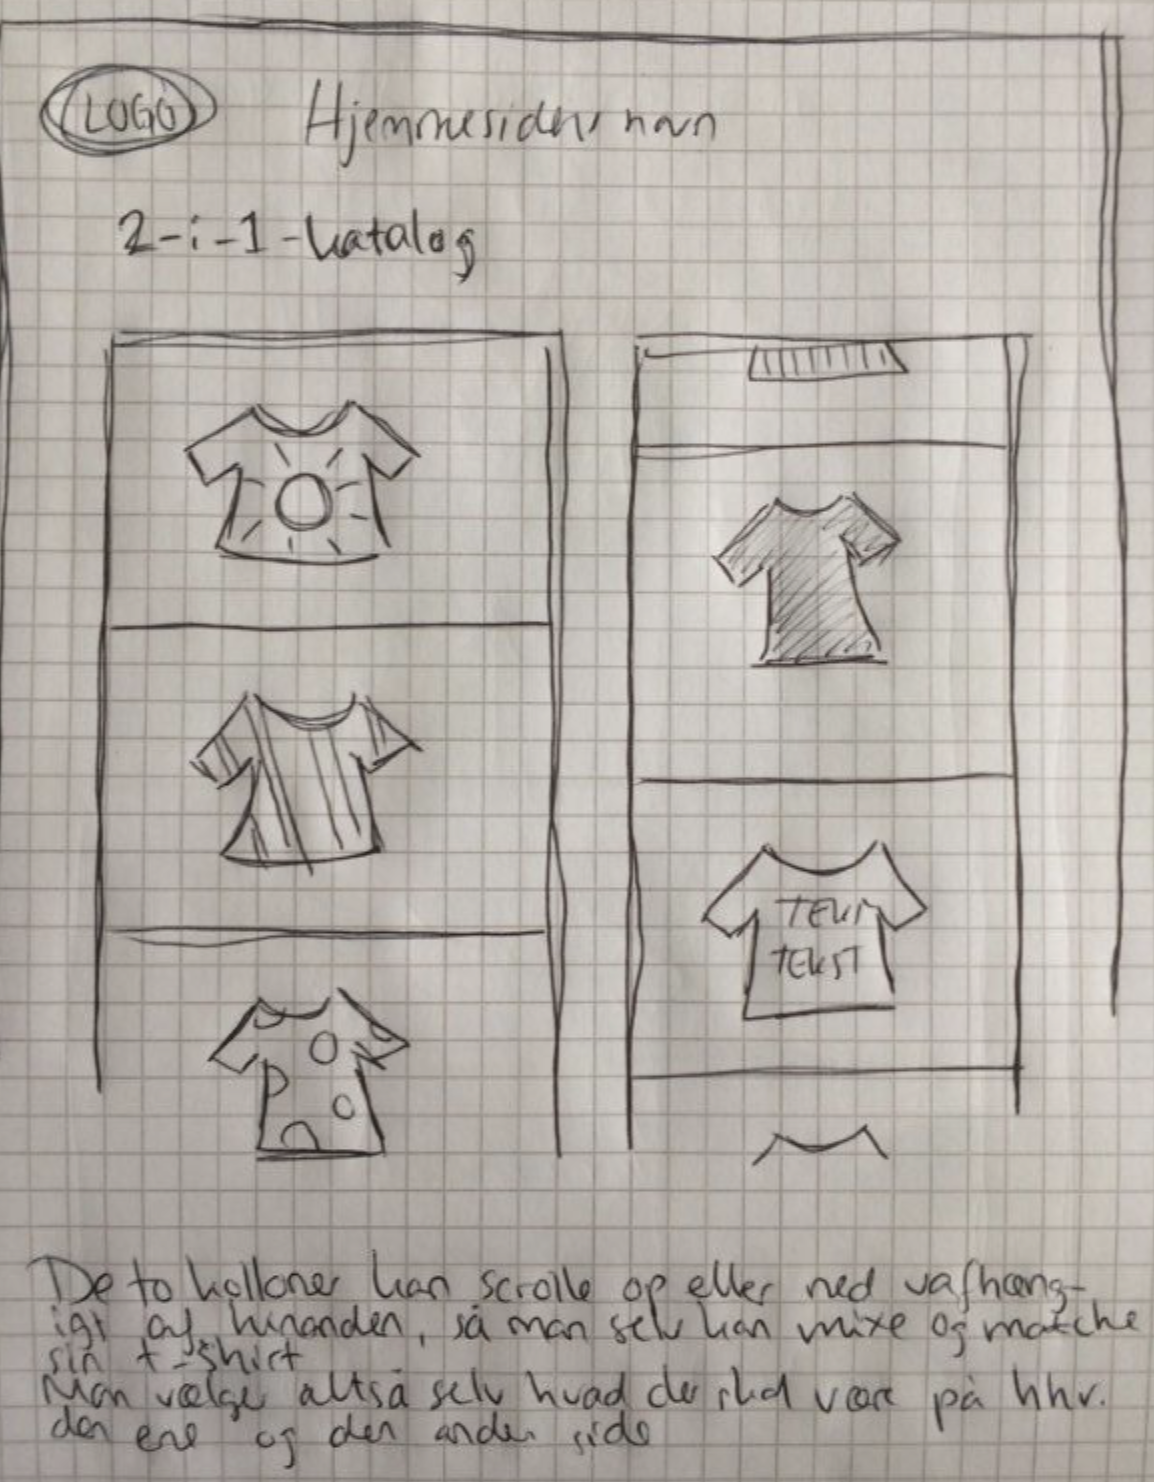 LOGO Hjemmesidens navn
2-i-1-katalog
TEKST
De to kolloner kan scrolle op eller ned uafhæng-
igt af hinanden, så man selv kan mixe og matche
sin t-shirt
Man vælger altså selv hvad der skal være på hhv.
den ene og den anden side